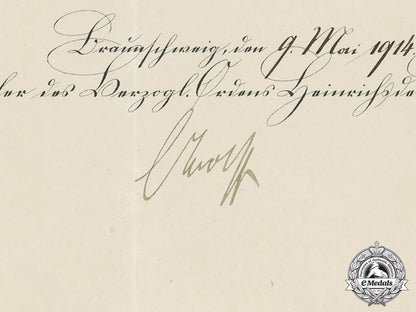 Braunschweig, den 9. Mai 1914
ler des Herzogl. Ordens Heinrichs de
eMedals